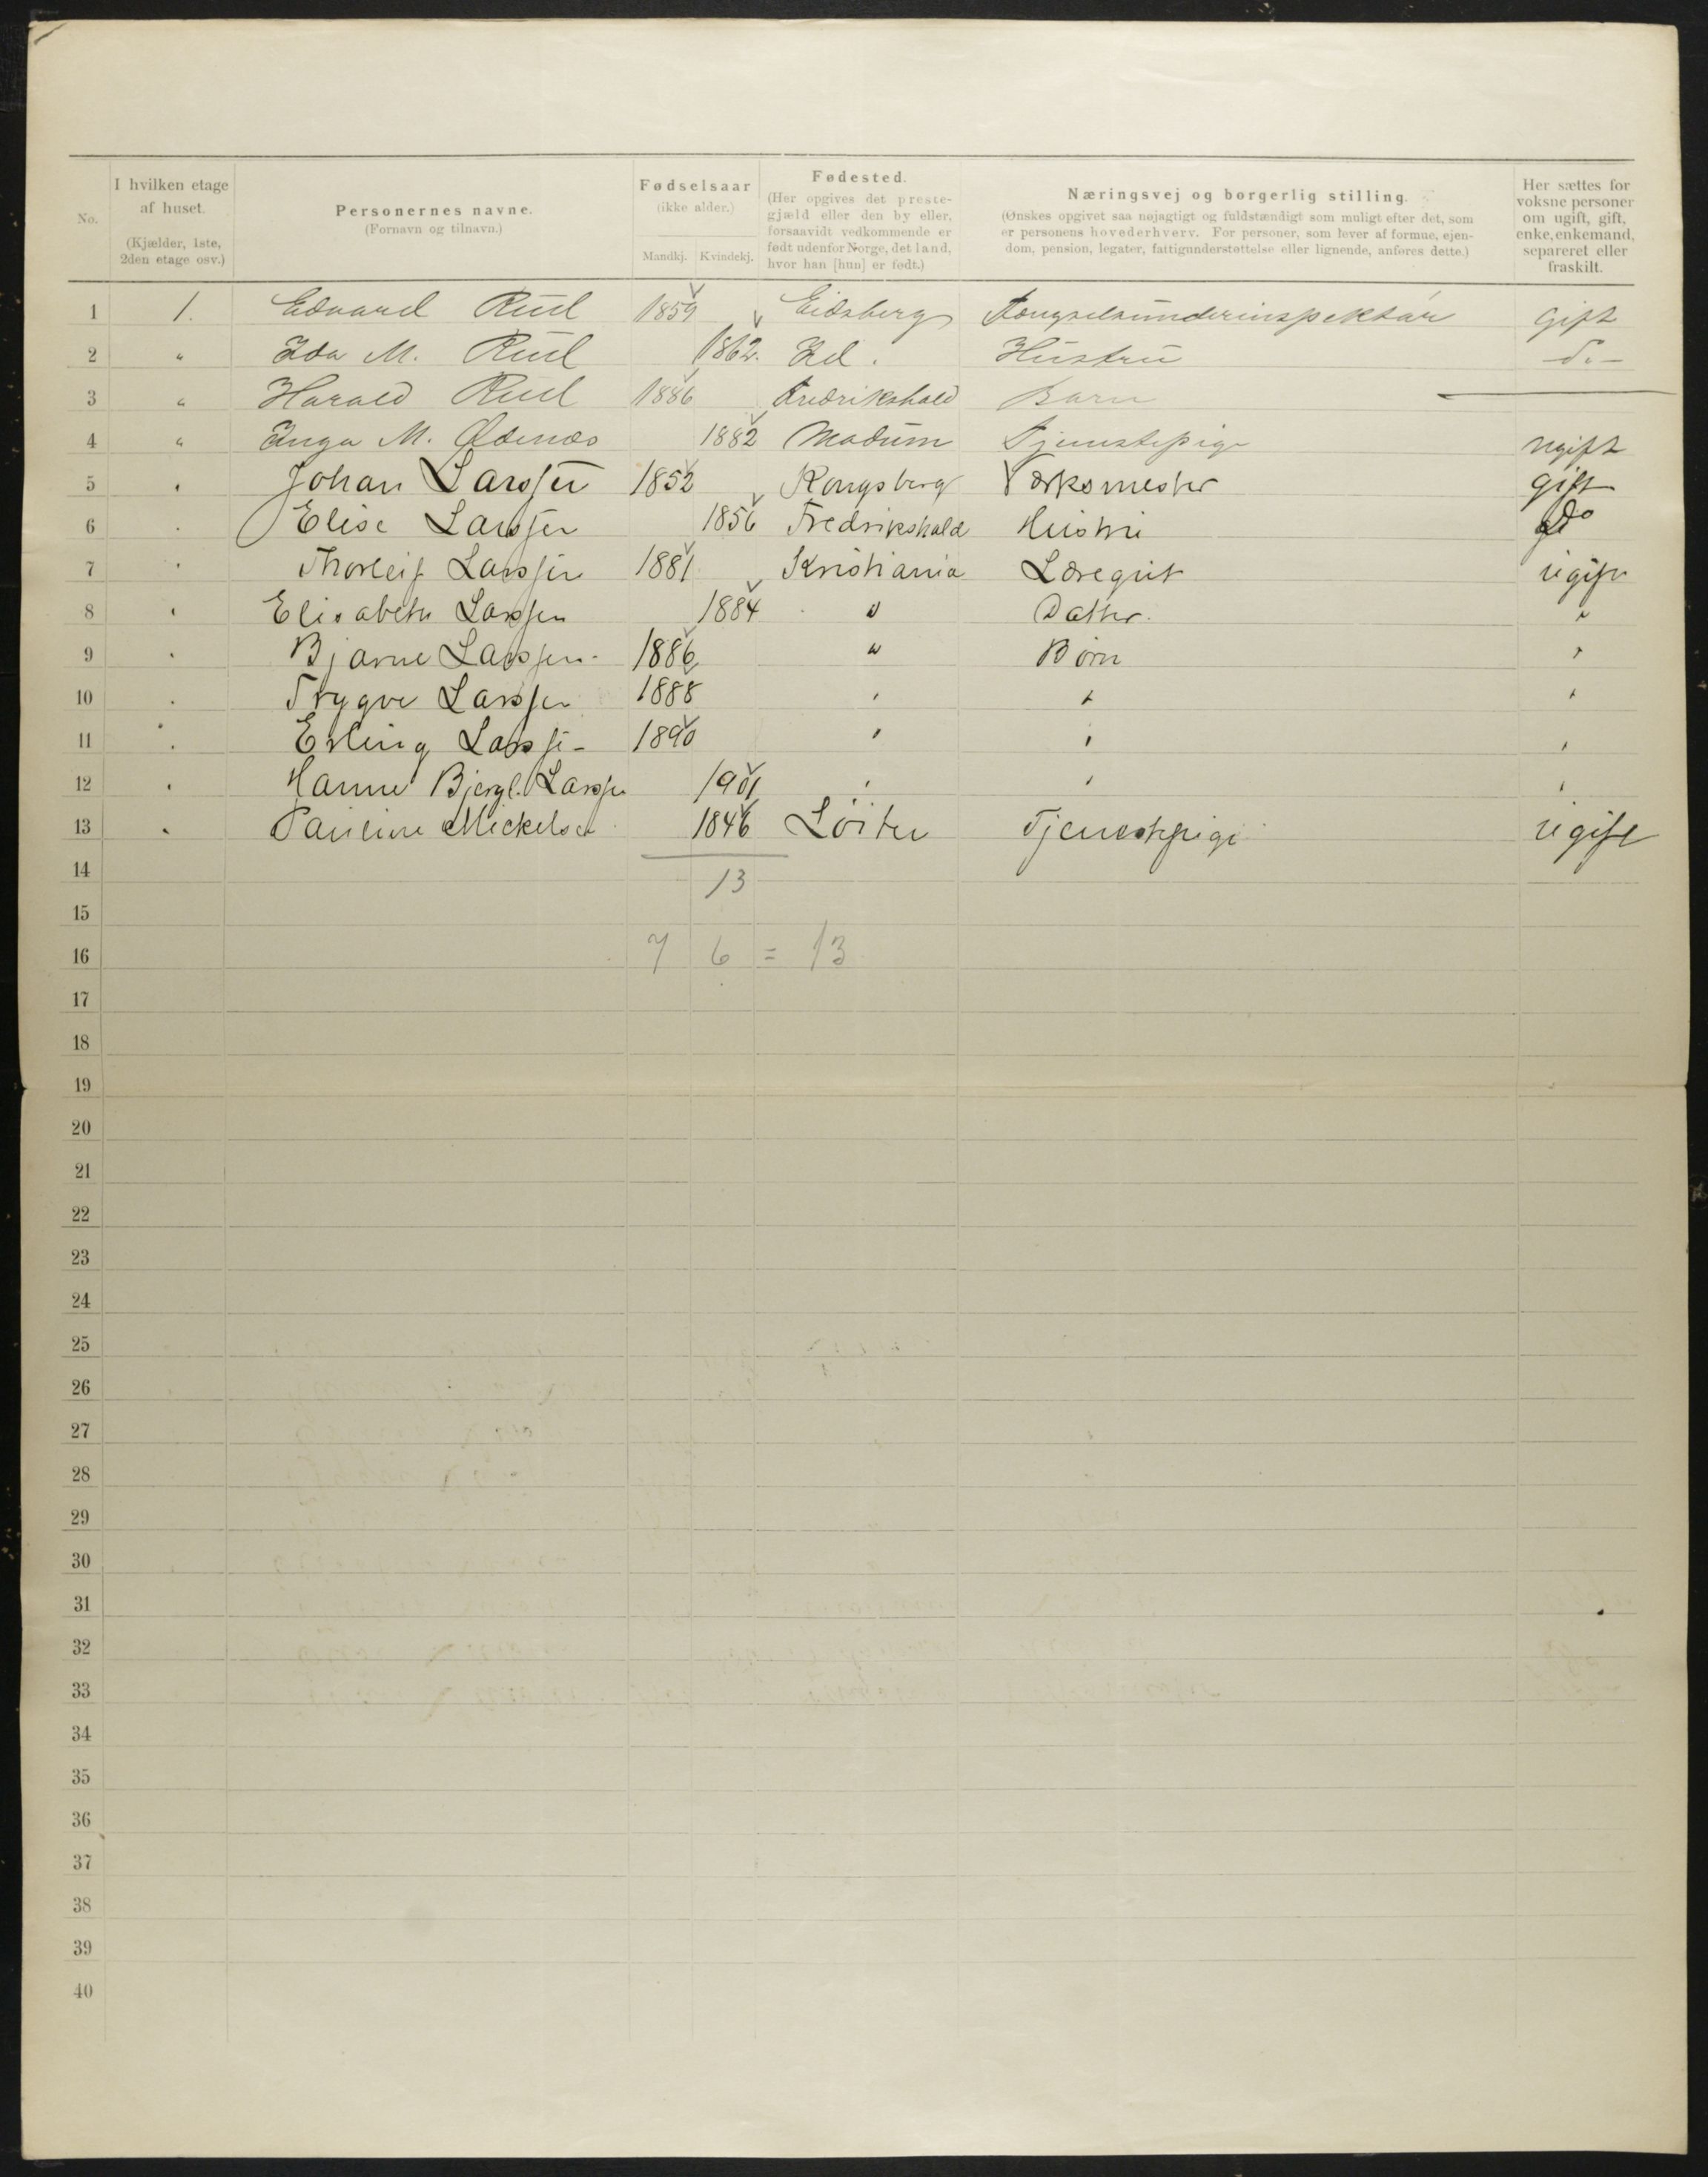 No.
I hvilken etage af huset.
(Kjælder, 1ste, 2den etage osv.)
Personernes navne.
(Fornavn og tilnavn.)
Fødselsaar
(ikke alder.)
Mandkj. Kvindekj.
Fødested.
(Her opgives det preste-
gjæld eller den by eller,
forsaavidt vedkommende er
født udenfor Norge, det land,
hvor han [hun] er født.)
Næringsvej og borgerlig stilling.
(Ønskes opgivet saa nøjagtigt og fuldstændigt som muligt efter det, som
er personens hovederhverv. For personer, som lever af formue, ejen-
dom, pension, legater, fattigunderstøttelse eller lignende, anføres dette.)
Her sættes for
voksne personer
om ugift, gift,
enke, enkemand,
separeret eller
fraskilt.
1 1. Edvard Rud 1859 Eidsberg Fængselsunderinspektør gift
2 " Ida M. Rud 1862. Id. Hustru do
3 " Harald Rud 1886 Fredrikshald Barn —
4 " Inga M. Ødenæs 1882 Modum Tjenestepige ugift
5 " Johan Larssen 1852 Kongsberg Værksmester gift
6 " Elise Larssen 1856 Fredrikshald Hustru do
7 " Thorleif Larssen 1881 Kristiania Læregut ugift
8 " Elisabeth Larssen 1884 " Datter. "
9 " Bjarne Larssen 1886 " Børn "
10 " Trygve Larssen 1888 " " "
11 " Erling Larssen 1890 " " "
12 " Hanne Bjergl. Larssen 1901 " " "
13 " Pauline Mickelsen 1846 Löiten Tjenestepige ugift
14 13
15
16 7 6 = 13
17
18
19
20
21
22
23
24
25
26
27
28
29
30
31
32
33
34
35
36
37
38
39
40